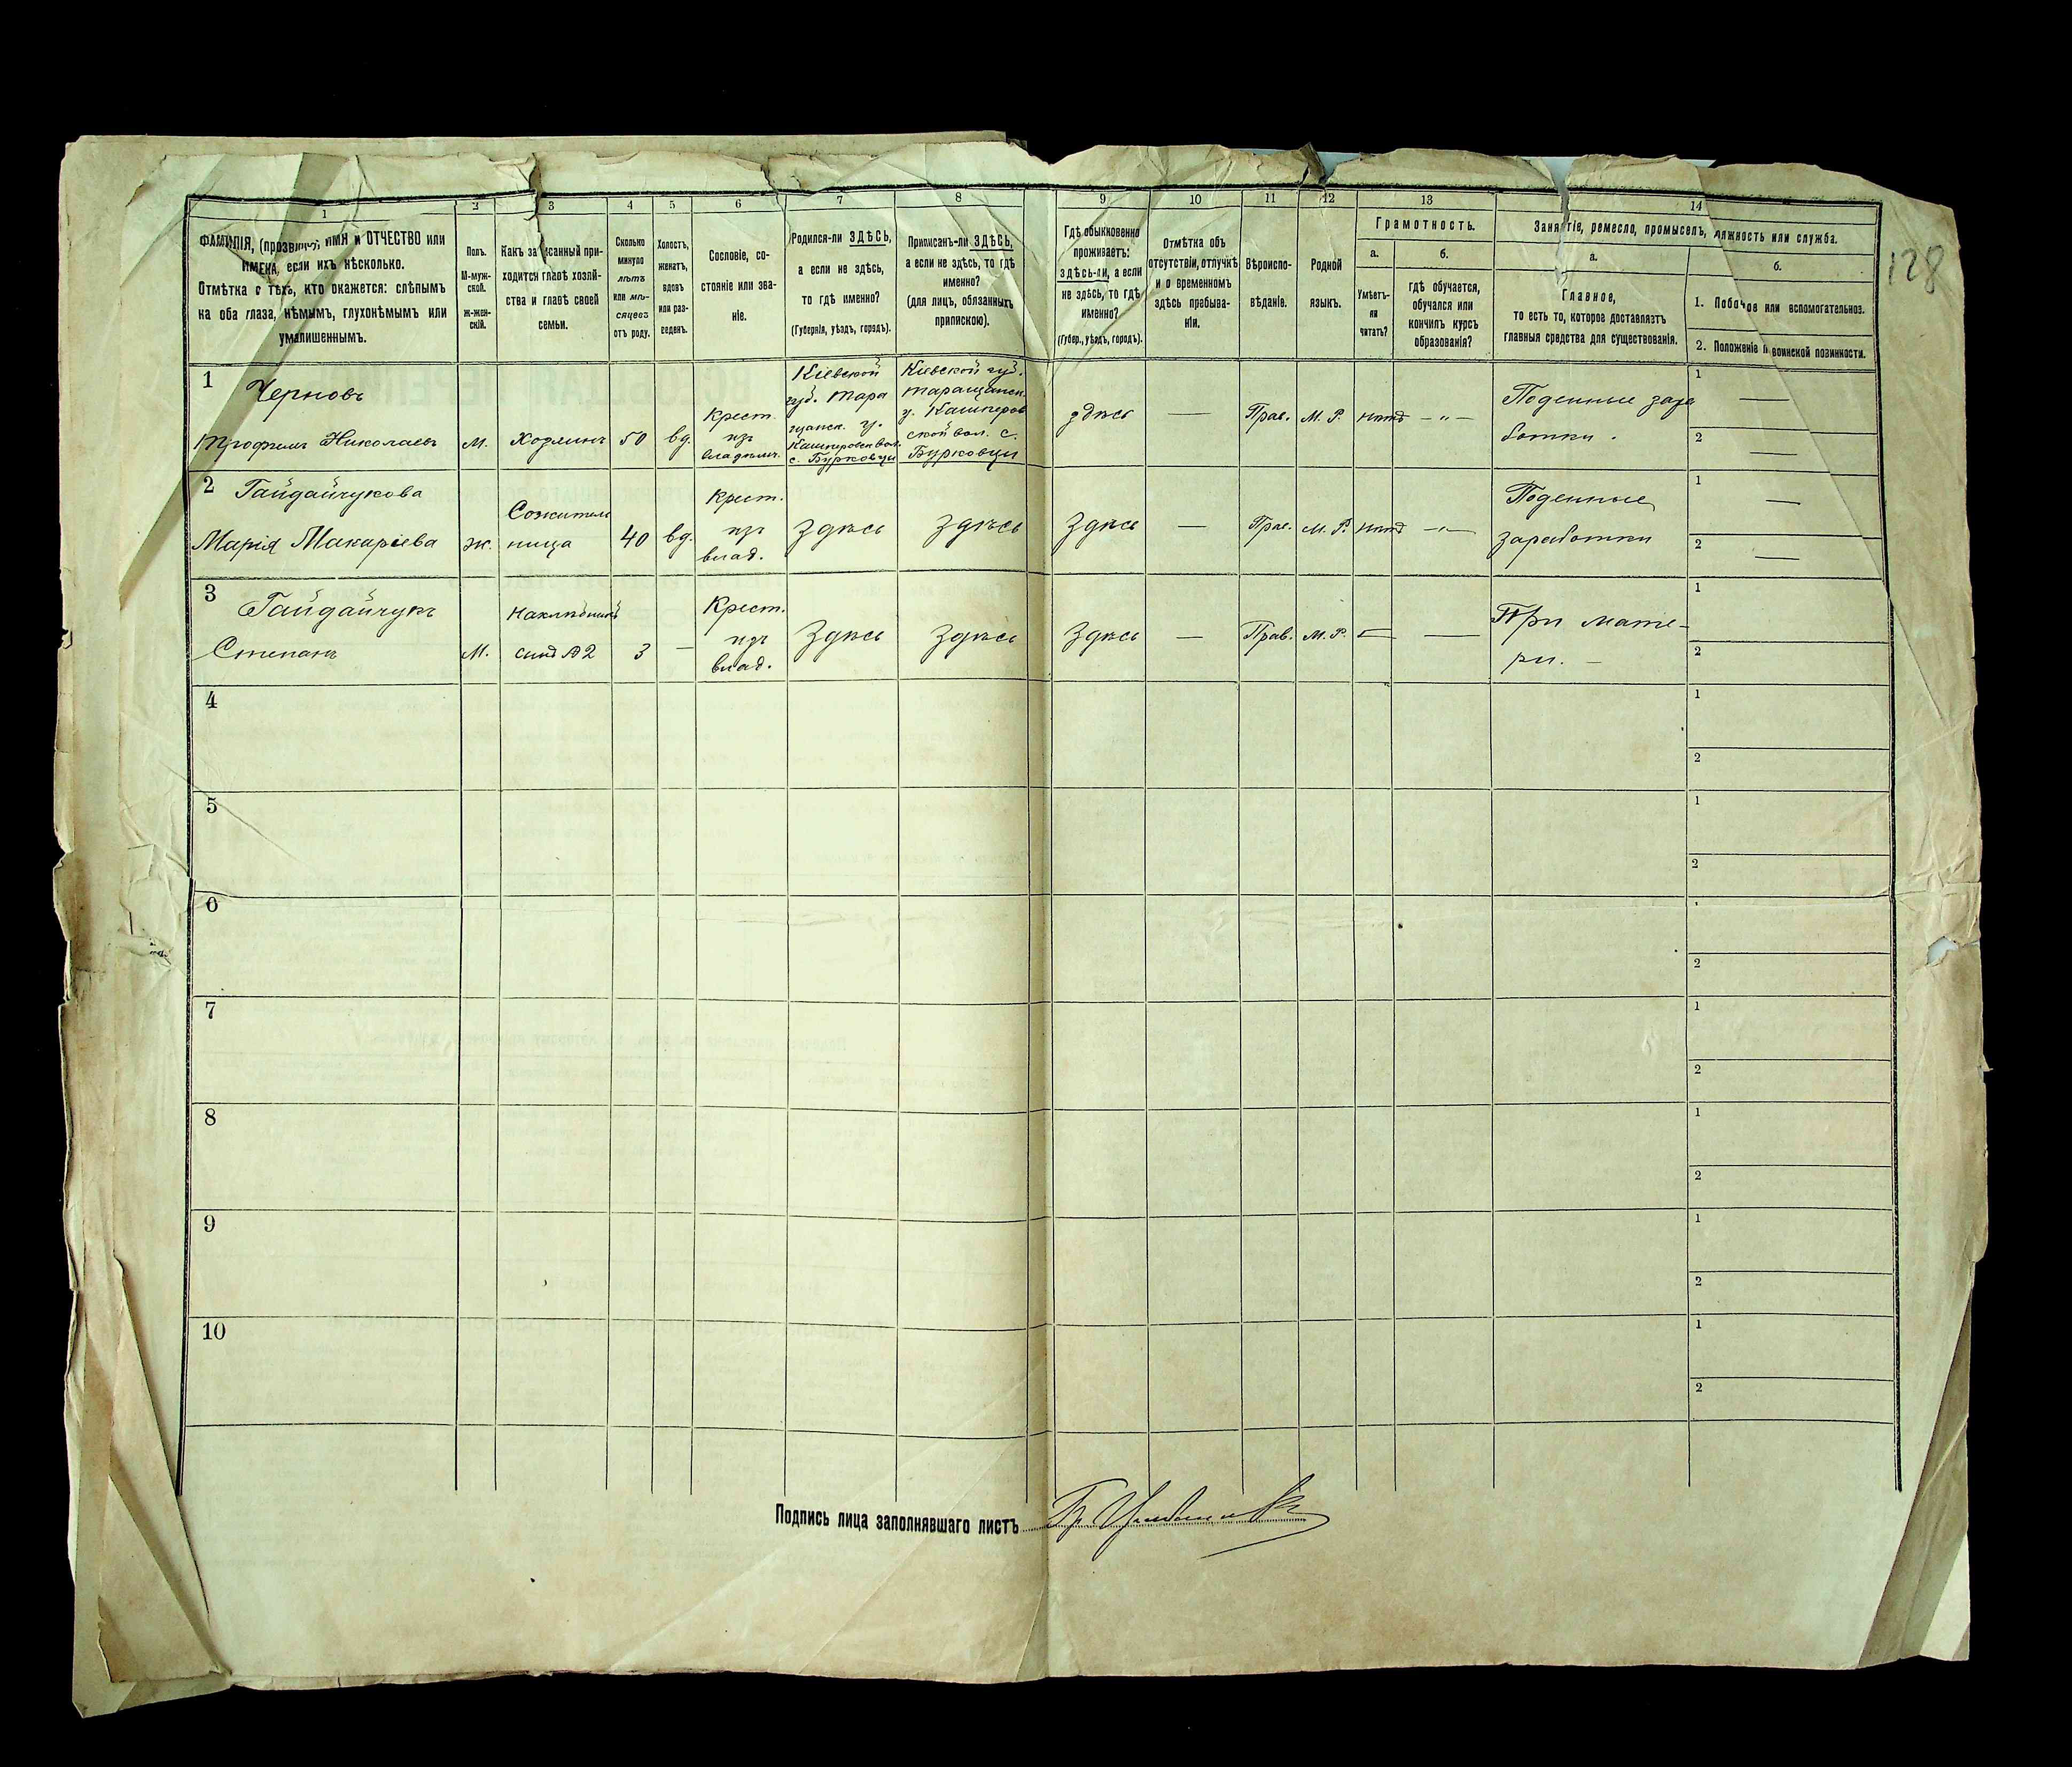 128
1 2 3 4 5 6 7 8 9 10 11 12 13 14
ФАМИЛІЯ, (прозвище), ИМЯ и ОТЧЕСТВО или
ИМЕНА, если ихъ нѣсколько.
Отмѣтка о тѣхъ, кто окажется: слѣпымъ
на оба глаза, нѣмымъ, глухонѣмымъ или
умалишеннымъ.
Полъ.
М-муж-
ской.
Ж-жен-
скій.
Какъ записанный при-
ходится главѣ хозяй-
ства и главѣ своей
семьи.
Сколько
минуло
лѣтъ
или мѣ-
сяцевъ
отъ роду.
Холостъ,
женатъ,
вдовъ
или раз-
веденъ.
Сословіе, со-
стояніе или зва-
ніе.
Родился-ли ЗДѢСЬ,
а если не здѣсь,
то гдѣ именно?
(Губернія, уѣздъ, городъ).
Приписанъ-ли ЗДѢСЬ,
а если не здѣсь, то гдѣ
именно?
(для лицъ, обязанныхъ
припискою).
Гдѣ обыкновенно
проживаетъ:
здѣсь-ли, а если
не здѣсь, то гдѣ
именно?
(Губер., уѣздъ, городъ).
Отмѣтка объ
отсутствіи, отлучкѣ
и о временномъ
здѣсь пребыва-
ніи.
Вѣроиспо-
вѣданіе.
Родной
языкъ.
Грамотность.
а.
Умѣетъ-
ли
читать?
б.
гдѣ обучается,
обучался или
кончилъ курсъ
образованія?
Занятіе, ремесло, промыселъ, должность или служба.
а.
Главное,
то есть то, которое доставляетъ
главныя средства для существованія.
б.
1. Побочное или вспомогательное.
2. Положеніе по воинской повинности.
1
Черновъ
Трофимъ Николаевъ
м.
Хозяинъ
50
вд.
Крест.
изъ
владѣльч.
Кіевской
губ. Тара
щанск. у.
Кашперовск. вол.
с. Бурковци
Кіевской губ.
Таращанск.
у. Кашперов
ской вол. с.
Бурковци
здѣсь
—
Прав.
М. Р.
нѣтъ
— „ —
Поденные зара
ботки.
1 —
2 —
2
Гайдайчукова
Марія Макаріева
ж.
Сожитель
ница
40
вд.
Крест.
изъ
влад.
Здѣсь
Здѣсь
Здѣсь
—
Прав.
М. Р.
нѣтъ
— „ —
Поденные
заработки
1 —
2 —
3
Гайдайчукъ
Степанъ
М.
сынъ № 2
3
—
Крест.
изъ
влад.
Здѣсь
Здѣсь
Здѣсь
—
Прав.
М. Р.
—
—
При мате-
ри. —
1
2
4
1
2
5
1
2
6
2
7
1
2
8
1
2
9
1
2
10
1
2
Подпись лица заполнявшаго листъ